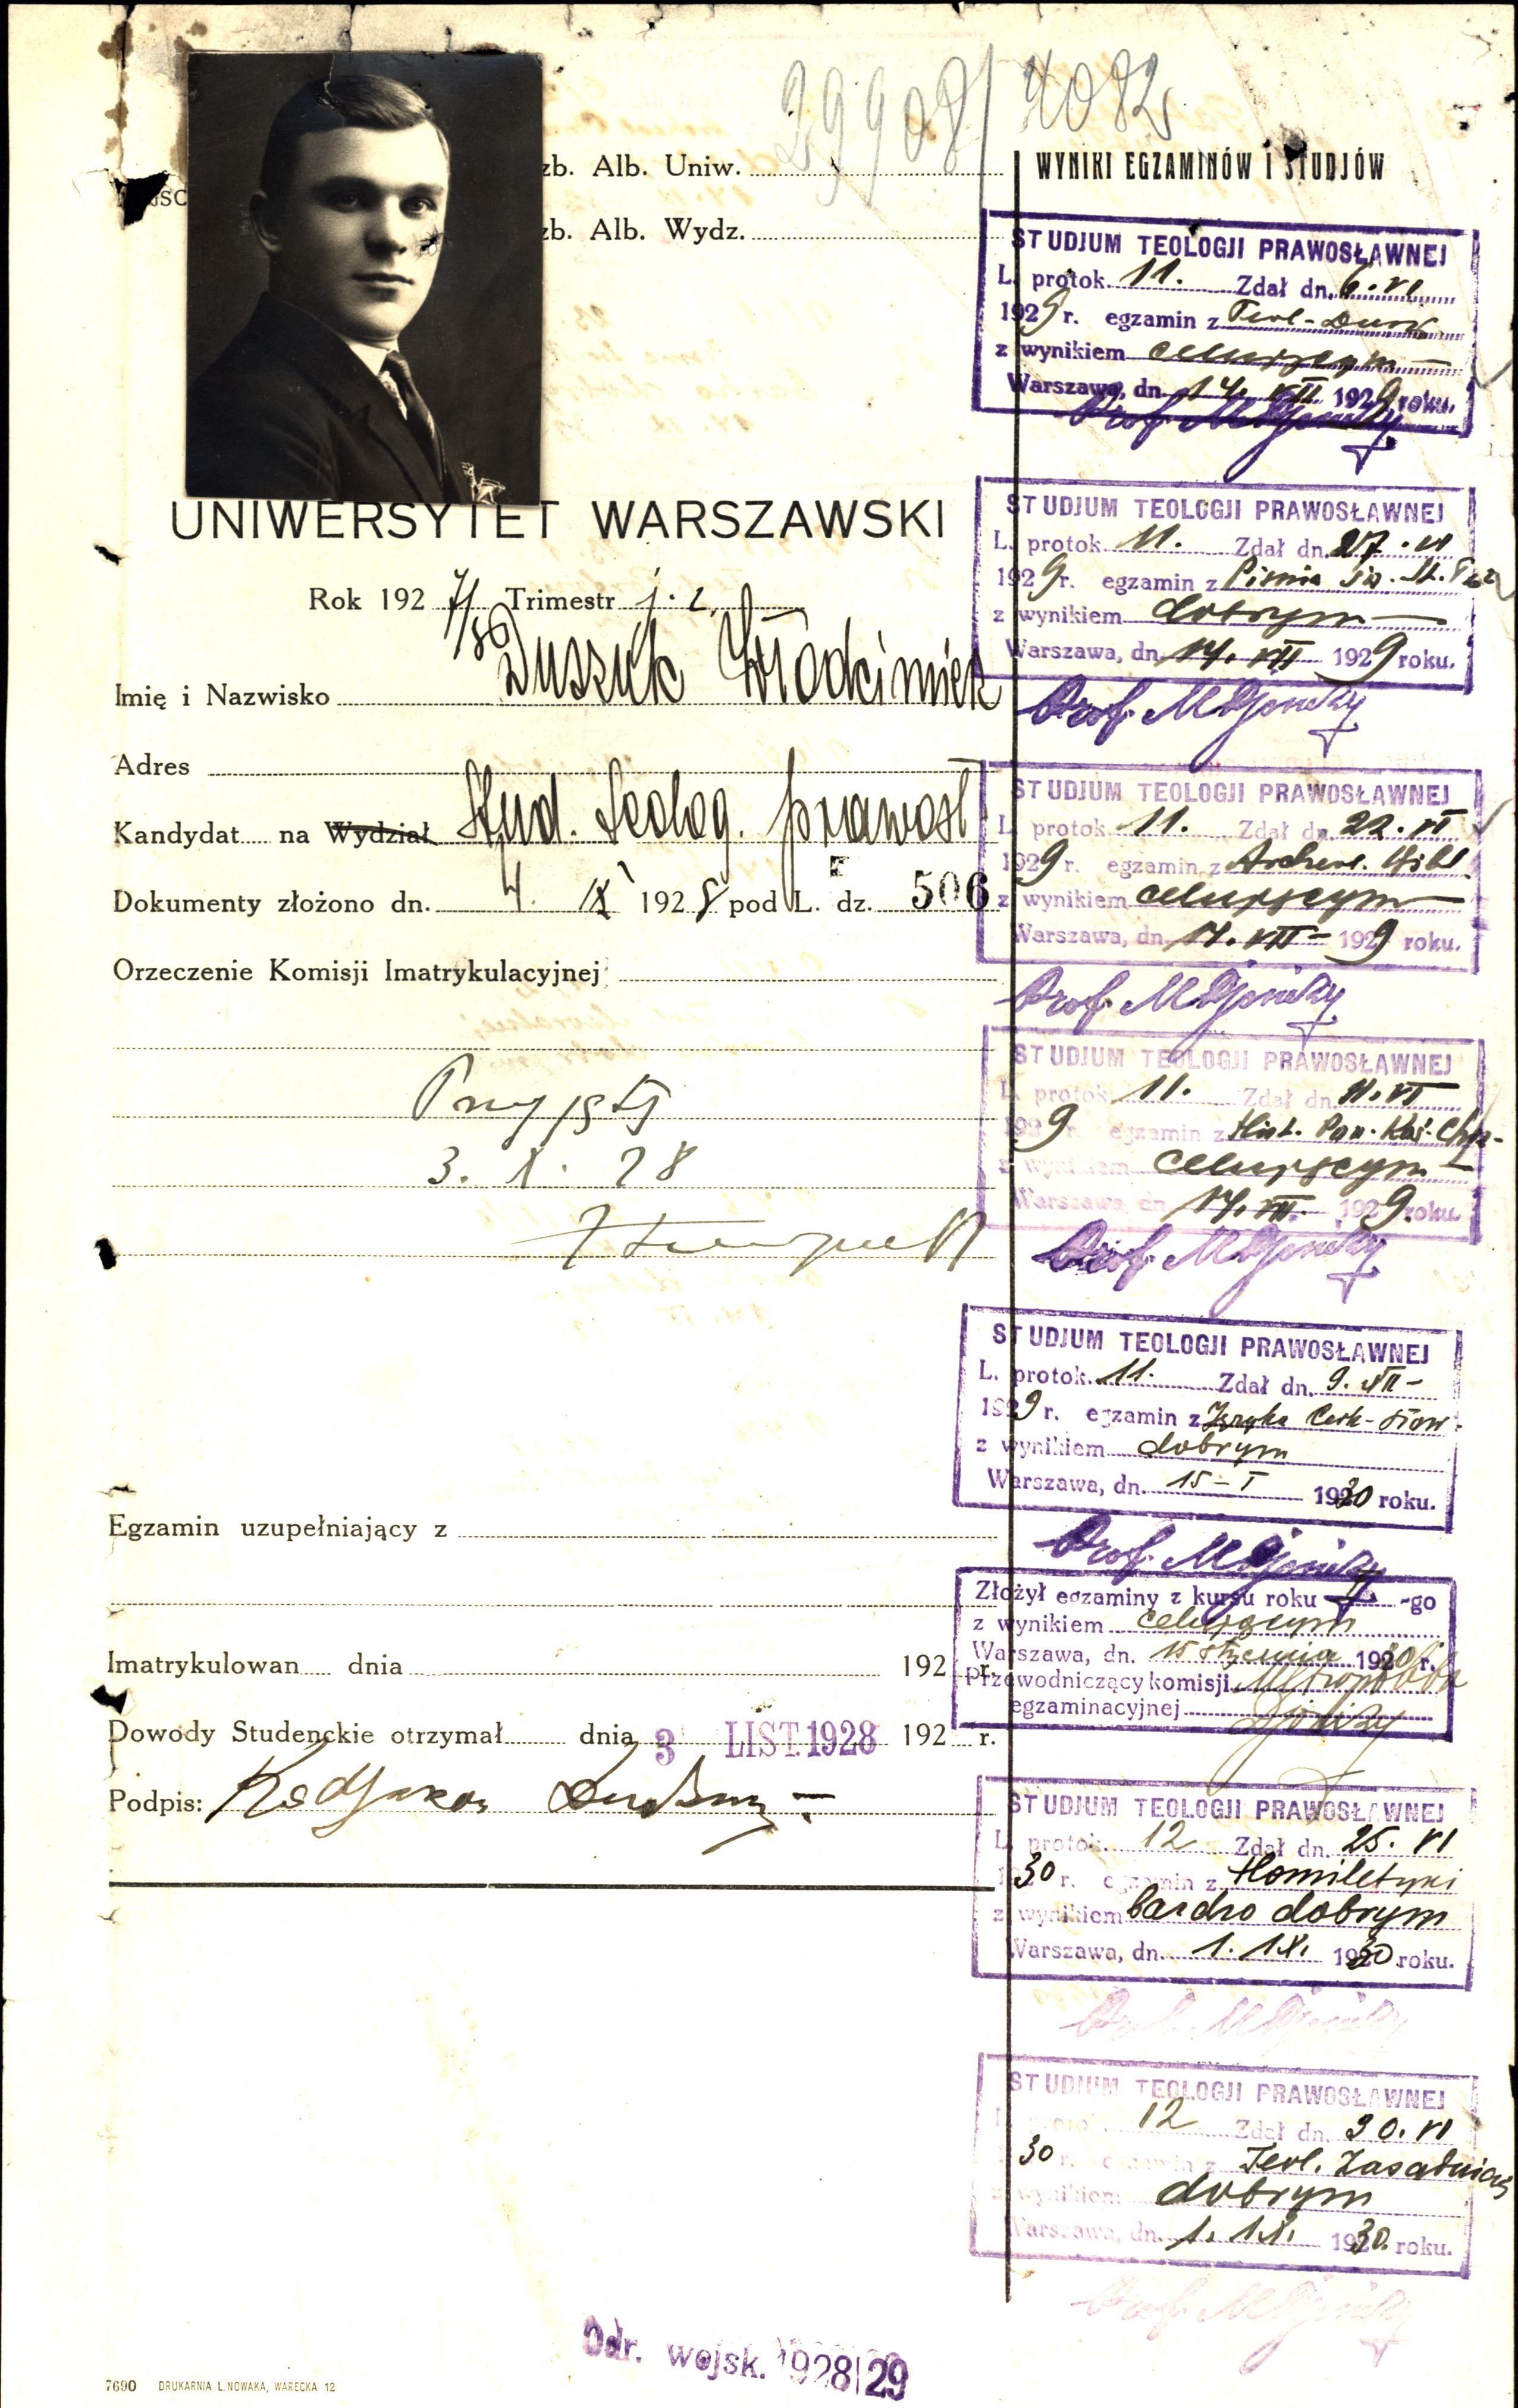 29908/4082
zb. Alb. Uniw.
zb. Alb. Wydz.
UNIWERSYTET WARSZAWSKI
Rok 192 7/8 Trimestr 1.
Imię i Nazwisko Duszuk Włodzimierz
Adres
Kandydat na Wydział Stud. teolog. prawosł
Dokumenty złożono dn. 4. IX 1928 pod L. dz. 506
Orzeczenie Komisji Imatrykulacyjnej
Przyjęty
3. X. 28
Egzamin uzupełniający z
Imatrykulowan dnia 192 r.
Dowody Studenckie otrzymał dnia 3 LIST. 1928 192 r.
Podpis:
Odr. wojsk. 1928/29
7690 DRUKARNIA L. NOWAKA, WARECKA 12
WYNIKI EGZAMINÓW I STUDJÓW
STUDJUM TEOLOGJI PRAWOSŁAWNEJ
L. protok. 11. Zdał dn. 6. VI
1929 r. egzamin z Teol-
z wynikiem celującym
Warszawa, dn. 14. VII 1929 roku.
Prof.
STUDJUM TEOLOGJI PRAWOSŁAWNEJ
L. protok. 11. Zdał dn. 27. VI
1929 r. egzamin z Pisma Św. St.
z wynikiem dobrym
Warszawa, dn. 14. VII 1929 roku.
Prof.
STUDJUM TEOLOGJI PRAWOSŁAWNEJ
L. protok. 11. Zdał dn. 22. VI
1929 r. egzamin z Archeol. Bibl.
z wynikiem celującym
Warszawa, dn. 14. VII 1929 roku.
Prof.
STUDJUM TEOLOGJI PRAWOSŁAWNEJ
L. protok. 11. Zdał dn. 11. VI
1929 r. egzamin z Hist. Pow. Koś. Chrz.
z wynikiem celującym
Warszawa, dn. 14. VII. 1929 roku.
Prof.
STUDJUM TEOLOGJI PRAWOSŁAWNEJ
L. protok. 11. Zdał dn. 9. XII
1929 r. egzamin z Języka Cerk-słow.
z wynikiem dobrym
Warszawa, dn. 15-I 1930 roku.
Prof.
Złożył egzaminy z kursu roku I-go
z wynikiem celującym
Warszawa, dn. 15 stycznia 1930 r.
Przewodniczący komisji Metropolita
egzaminacyjnej
STUDJUM TEOLOGJI PRAWOSŁAWNEJ
L. protok. 12 Zdał dn. 25. VI
1930 r. egzamin z Homiletyki
z wynikiem bardzo dobrym
Warszawa, dn. 1. IX. 1930 roku.
Prof.
STUDJUM TEOLOGJI PRAWOSŁAWNEJ
L. protok. 12 Zdał dn. 30. VI
30 r. egzamin z Teol. Zasadnicz
z wynikiem dobrym
Warszawa, dn. 1. IX. 1930. roku.
Prof.